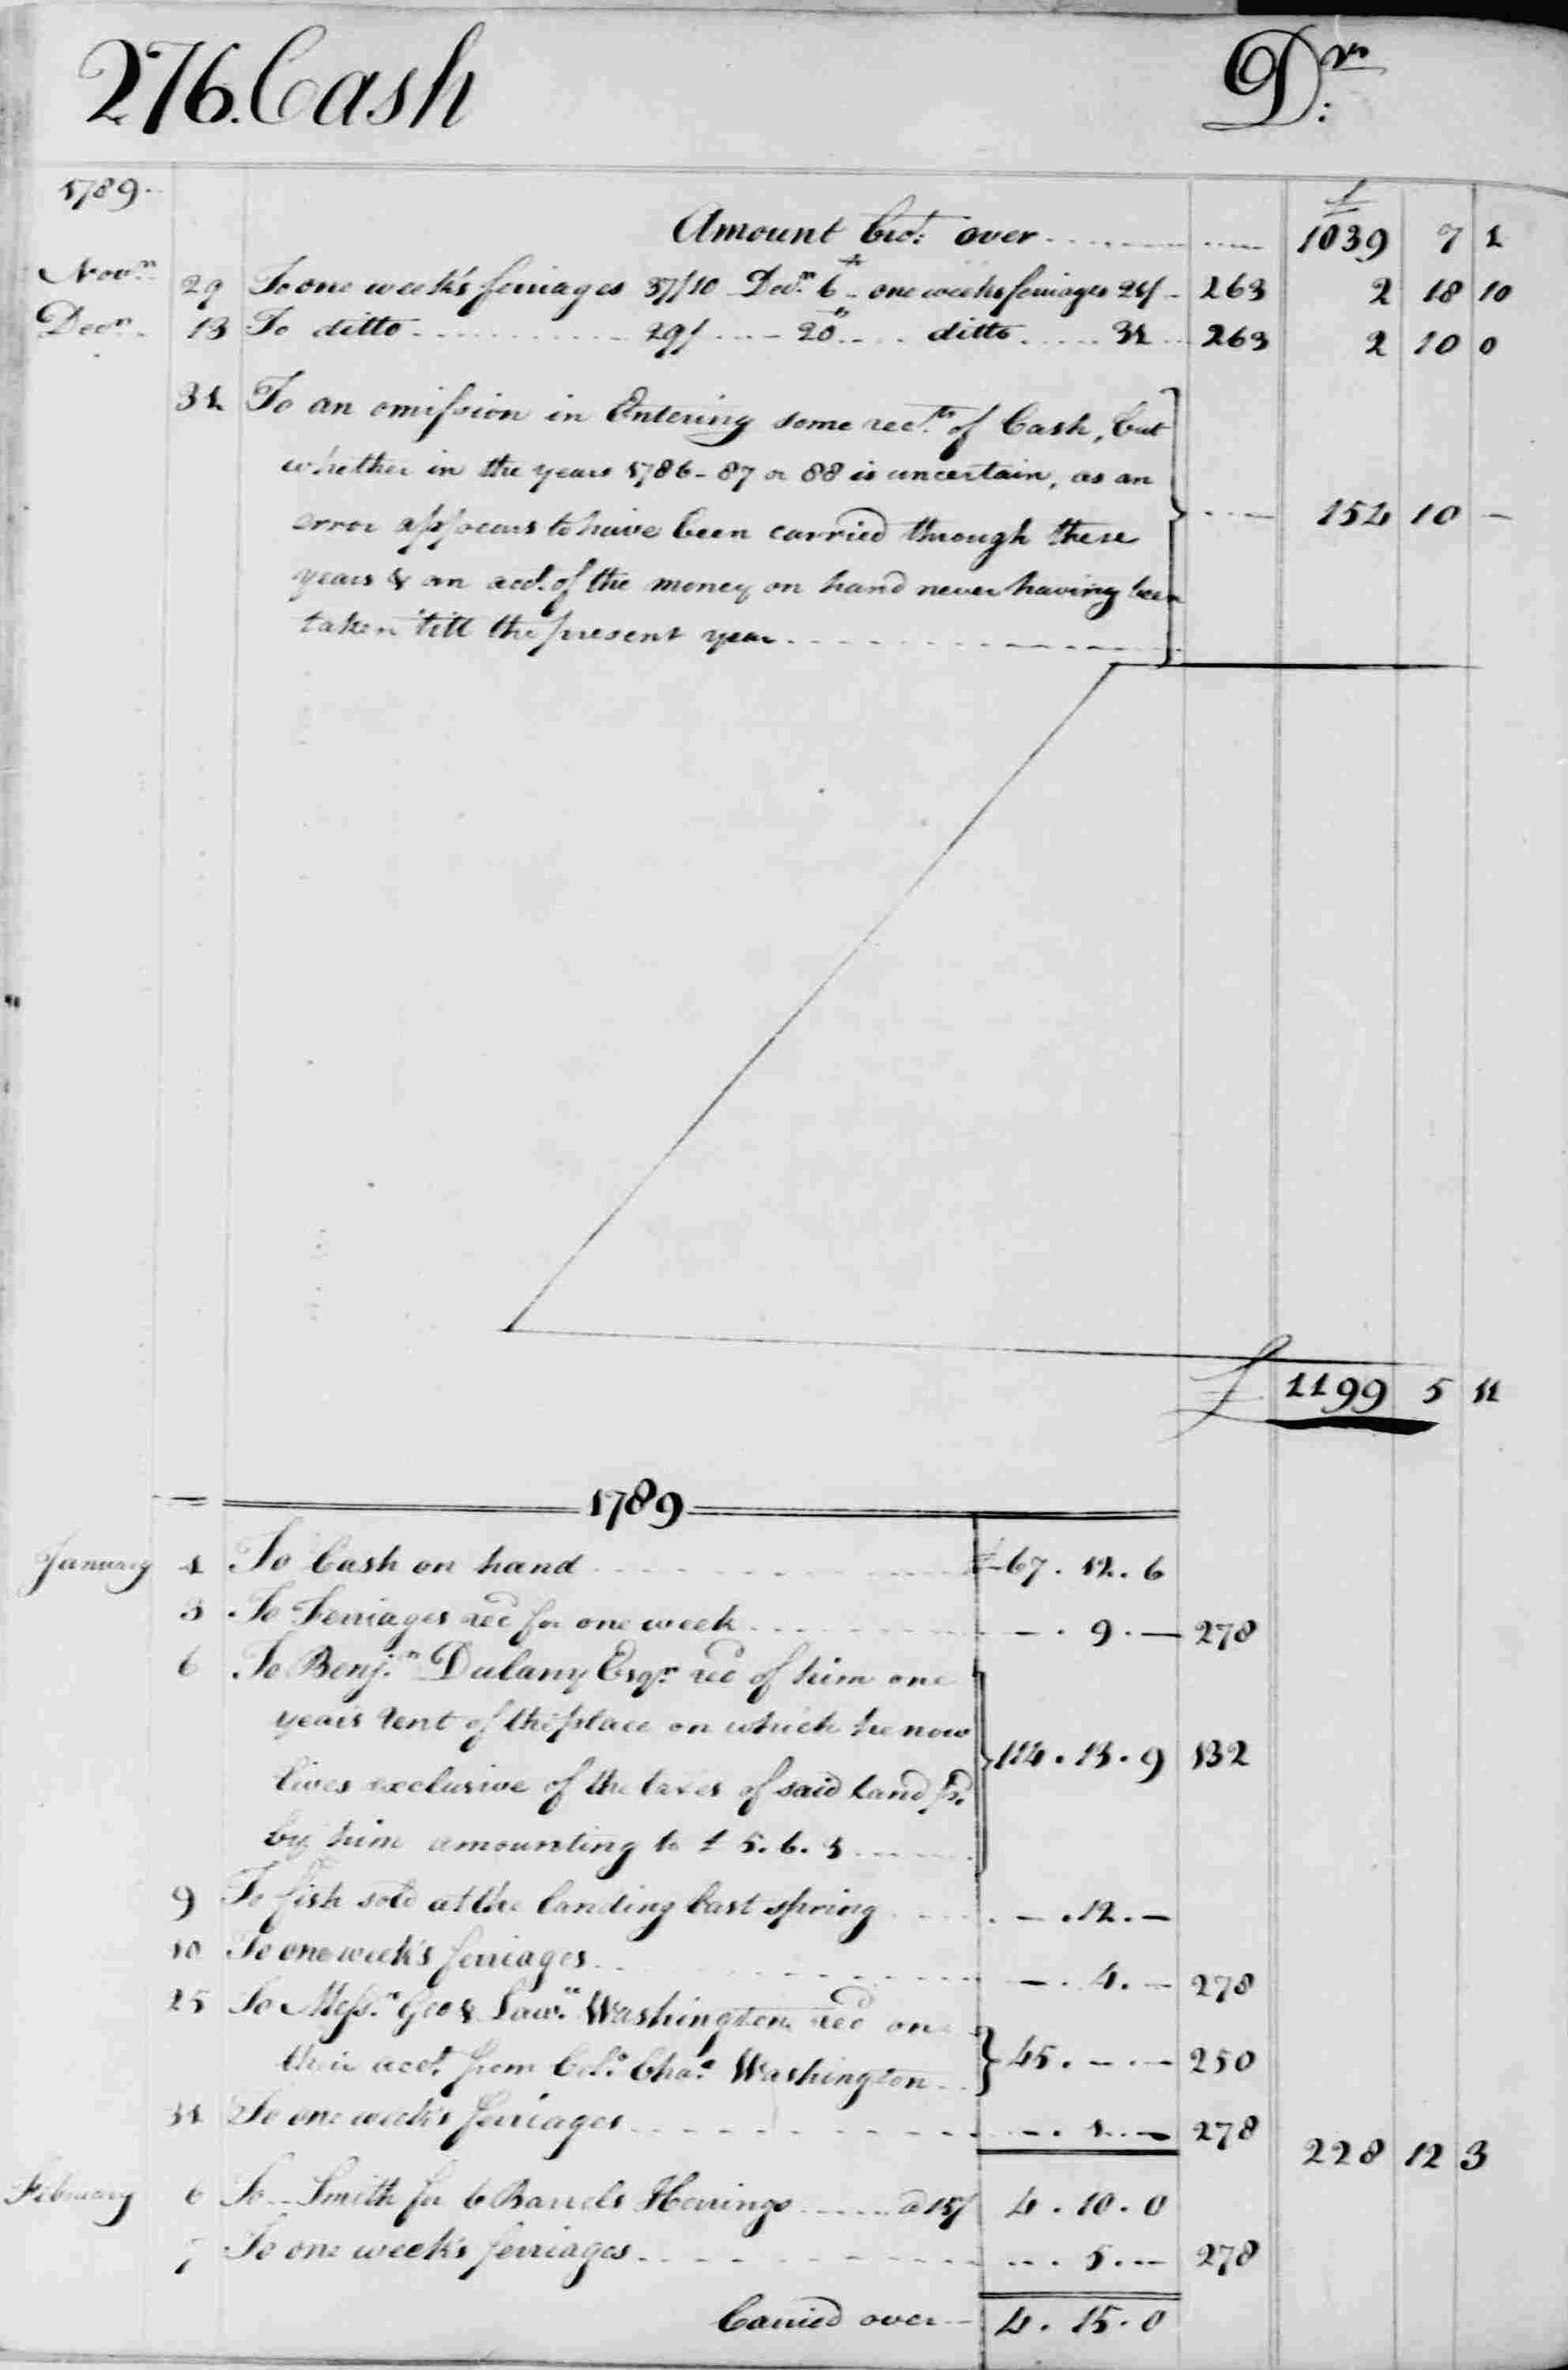 276. Cash Dr.
1789.
£
Amount bro.t over 1039 7 1
Novr. 29 To one week's ferriages 37/10 Decr. 6th one weeks ferriages 21/ 263 2 18 10
Decr. 13 To ditto 29/ 20th ditto 21 263 2 10 0
31 To an omission in Entering some rec.ts of Cash, but
whether in the years 1786-87 or 88 is uncertain, as an
error appears to have been carried through these 154 10 —
years & an acct. of the money on hand never having been
taken till the present year
£ 1199 5 11
1789
January 1 To Cash on hand £67. 12. 6
3 To Ferriages recd for one week —. 9. — 278
6 To Benjn. Dulany Esqr. recd of him one
years rent of the place on which he now
lives exclusive of the taxes of said Land pd. 114. 13. 9 132
by him amounting to £ 5. 6. 3
9 To fish sold at the landing last spring —. 12. —
10 To one week's ferriages —. 4. — 278
25 To Messrs. Geo & Lawe. Washington recd on
their acct. from Colo. Chas. Washington 45. —. — 250
31 To one week's ferriages —. 1. — 278
228 12 3
February 6 To Smith for 6 Barrels Herrings a 15/ 4. 10. 0
7 To one week's ferriages 5. — 278
Carried over 4. 15. 0